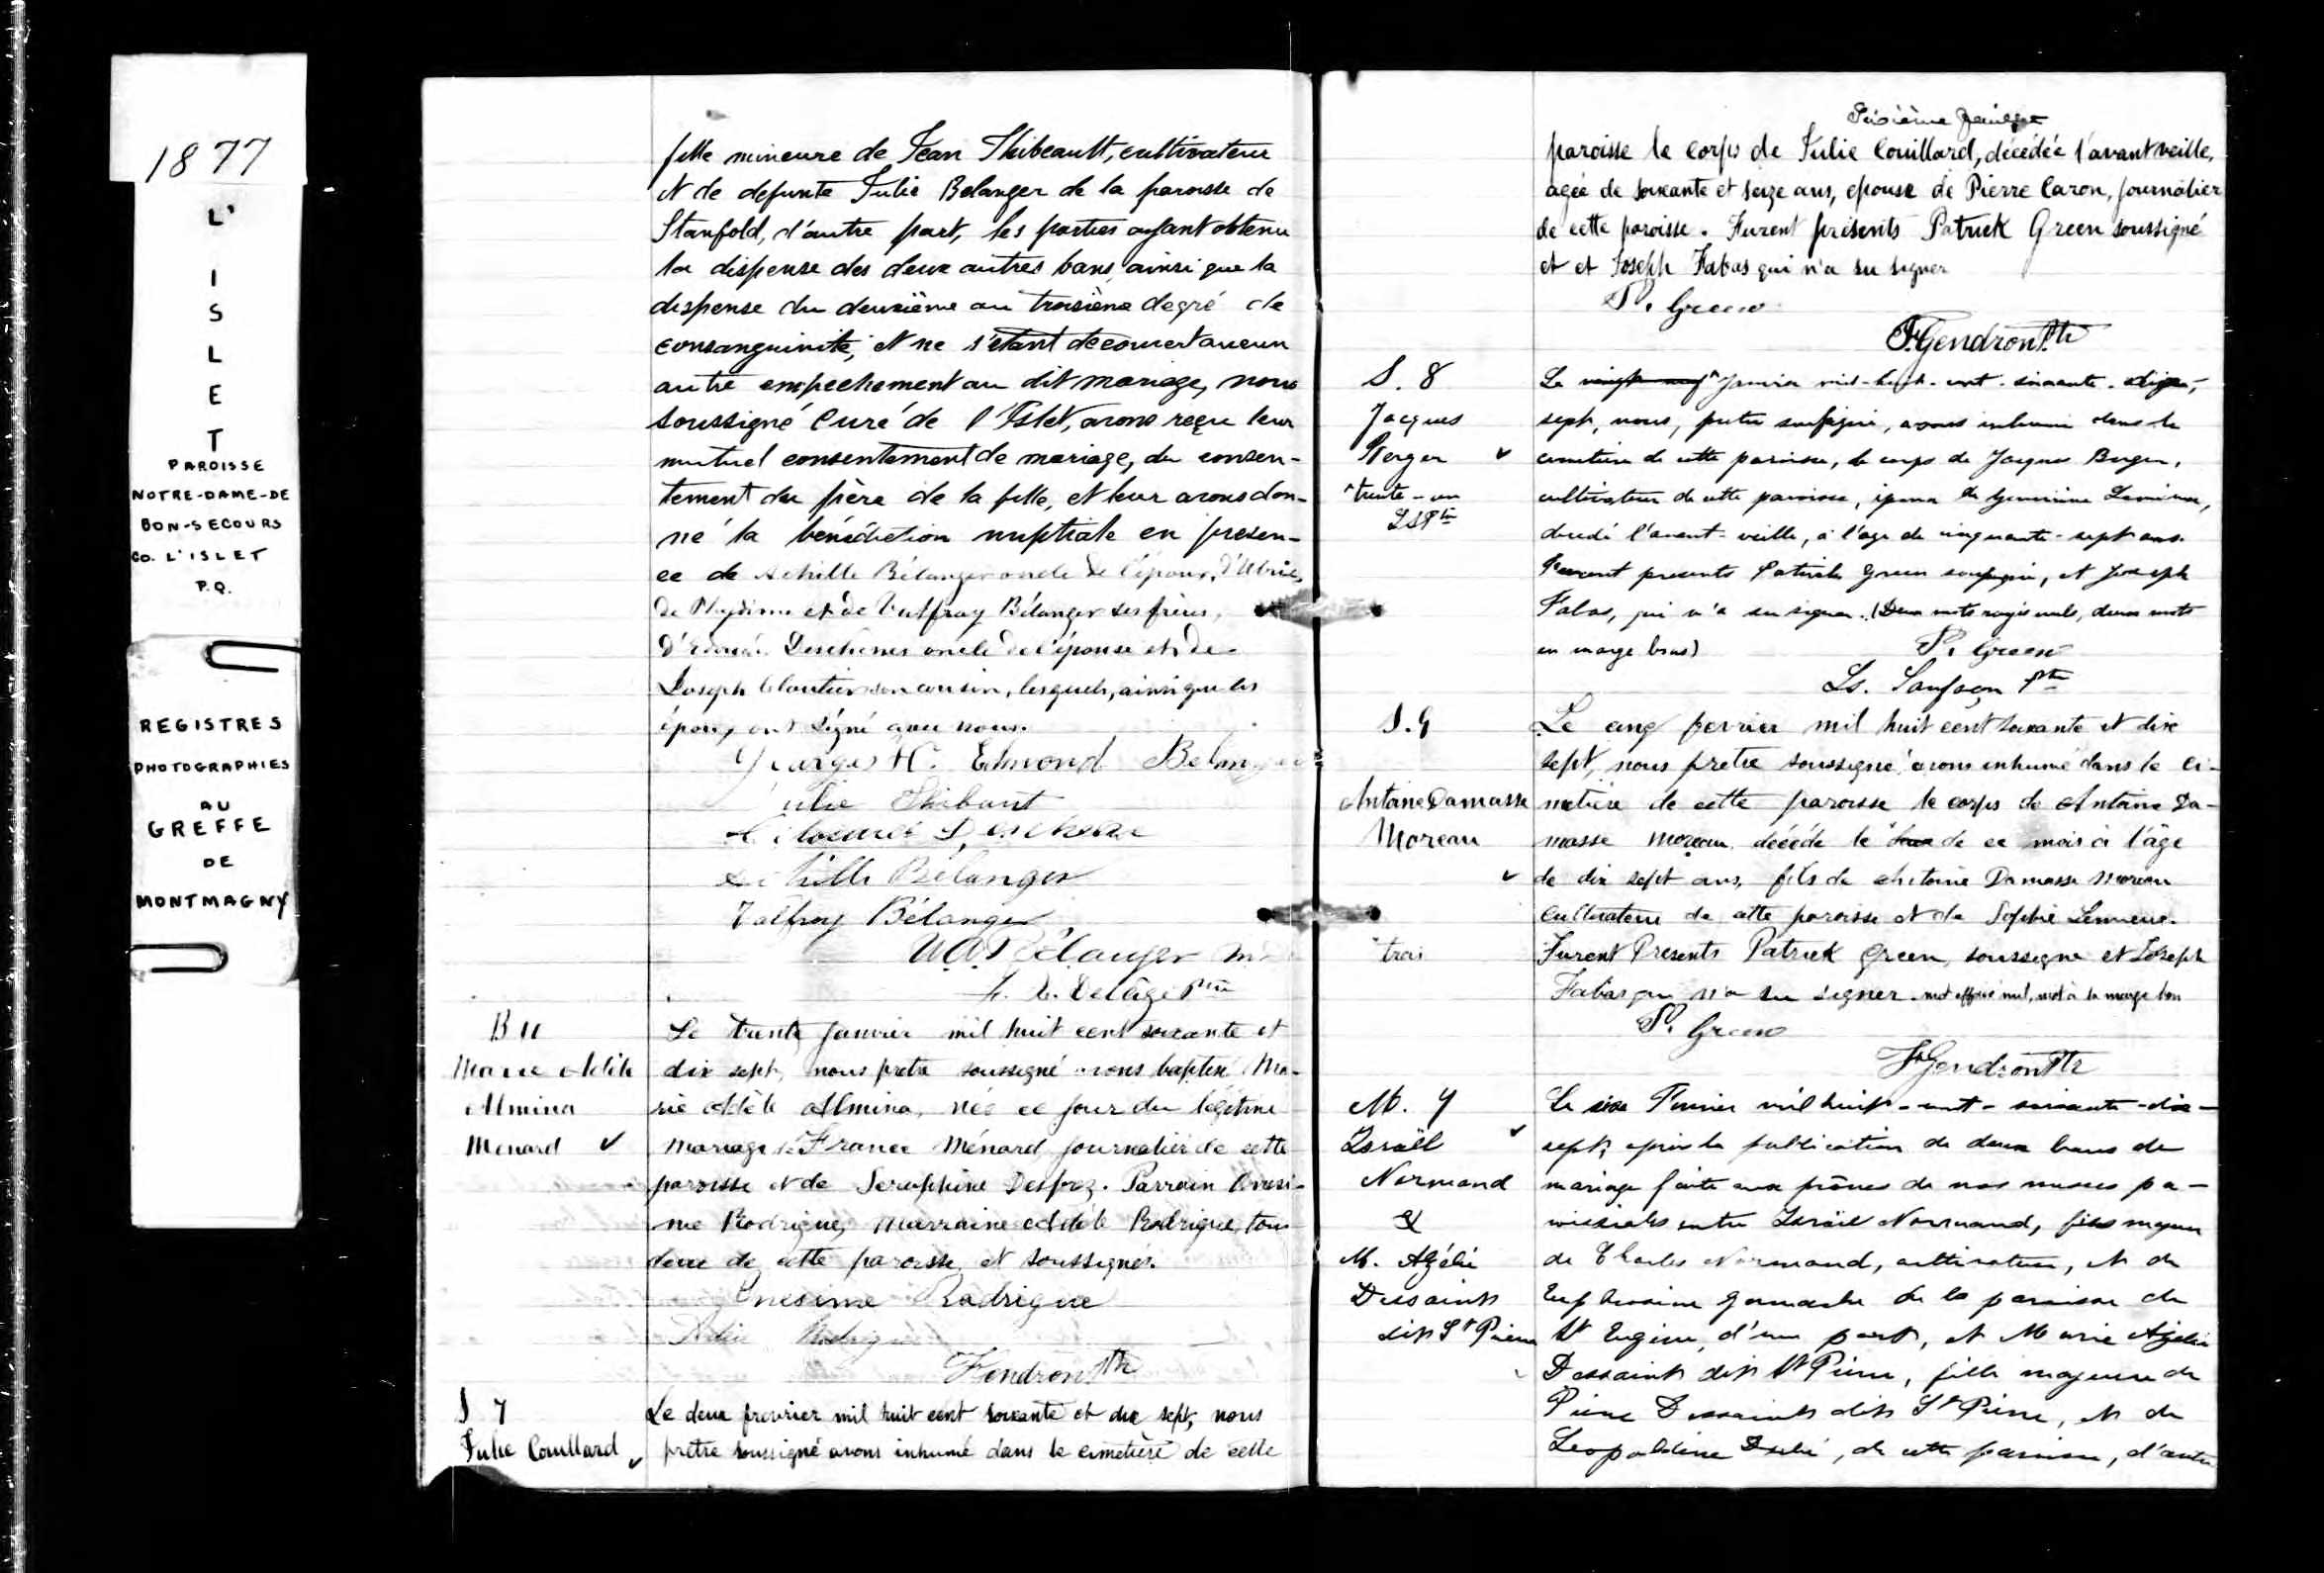 1877
L'
I
S
L
E
T
PAROISSE
NOTRE-DAME-DE
BON-SECOURS
CO. L'ISLET
P.Q.
REGISTRES
PHOTOGRAPHIES
AU
GREFFE
DE
MONTMAGNY
fille mineure de Jean Thibeault, cultivateur
et de defunte Julie Belanger de la paroisse de
Stanfold, d'autre part, les parties ayant obtenu
la dispense des deux autres bans ainsi que la
dispense du deuxième au troisième degré de
consanguinité, et ne s'etant decouvert aucun
autre empechement au dit mariage, nous
soussigné Curé de l'Islet, avons reçu leur
mutuel consentement de mariage, du consen-
tement du père de la fille, et leur avons don-
né la bénédiction nuptiale en presen-
ce de Achille Bélanger oncle de l'époux,
de et de Valfray Bélanger ses frères,
Deschenes oncle de l'épouse et de
Joseph Cloutier son cousin, lesquels, ainsi que les
époux ont signé avec nous.
Georges H. Edmond Belanger
Julie Thibaut
Achille Bélanger
Valfroy Bélanger
Bélanger
Delâge Ptre
B 11
Marie Adèle
Almina
Menard
Le trente janvier mil huit cent soixante et
dix sept, nous pretre soussigné avons baptisé Ma-
rie Adèle Almina, née ce jour du légitime
mariage de France Ménard journalier de cette
paroisse et de Seraphine Desprez. Parrain Onesi-
me Rodrigue, marraine Adele Rodrigue, tous
deux de cette paroisse et soussignés.
Onesime Rodrigue
Rodrigue
FGendron Ptre
S 7
Julie Couillard
Le deux fevrier mil huit cent soixante et dix sept, nous
pretre soussigné avons inhumé dans le cimetière de cette
Sixième
paroisse le corps de Julie Couillard, décédée l'avant veille,
agée de soixante et seize ans, epouse de Pierre Caron, journalier
de cette paroisse. Furent présents Patrick Green soussigné
et et Joseph Fabas qui n'a su signer
P. Green
F.Gendron Ptr
S. 8
Jacques
Berger
trente-un
LSPtre
Le vingt-neuf janvier mil-huit-cent-soixante-dix-
sept, nous, pretre soussigné, avons inhumé dans le
cimetière de cette paroisse, le corps de Jacques Berger,
cultivateur de cette paroisse, époux de Lemieux,
décédé l'avant-veille, à l'age de cinquante-sept ans.
Furent presents Patrick Green soussigné, et Joseph
Fabas, qui n'a su signer. (Deux mots rayés nuls, deux mots
en marge bons)
P. Green
Ls. Sanfaçon Ptre
S. 9
Antoine Damasse
Moreau
trois
Le cinq fevrier mil huit cent soixante et dix
sept, nous pretre soussigné avons inhumé dans le ci-
metière de cette paroisse le corps de Antoine Da-
masse Moreau décédé le deux de ce mois à l'âge
de dix sept ans, fils de Antoine Damasse Moreau
cultivateur de cette paroisse et de Sophie Lemieux.
Furent Presents Patrick Green, soussigné et Joseph
Fabas qui n'a su signer. mot effacé nul, mot à la marge bon
P. Green
FGendron Ptr
M. 4
Israël
Normand
&
M. Azélie
Dessaint
dit St Pierre
Le six Fevrier mil huit-cent-soixante-dix-
sept, après la publication de deux bans de
mariage faite aux prônes de nos messes pa-
roissiales entre Israël Normand, fils majeur
de Charles Normand, cultivateur, et de
Euphrosine Gamache de la paroisse de
St Eugène, d'une part, et Marie Azélie
Dessaint dit St Pierre, fille majeure de
Pierre Dessaint dit St Pierre, et de
Leopoldine , de cette paroisse, d'autre